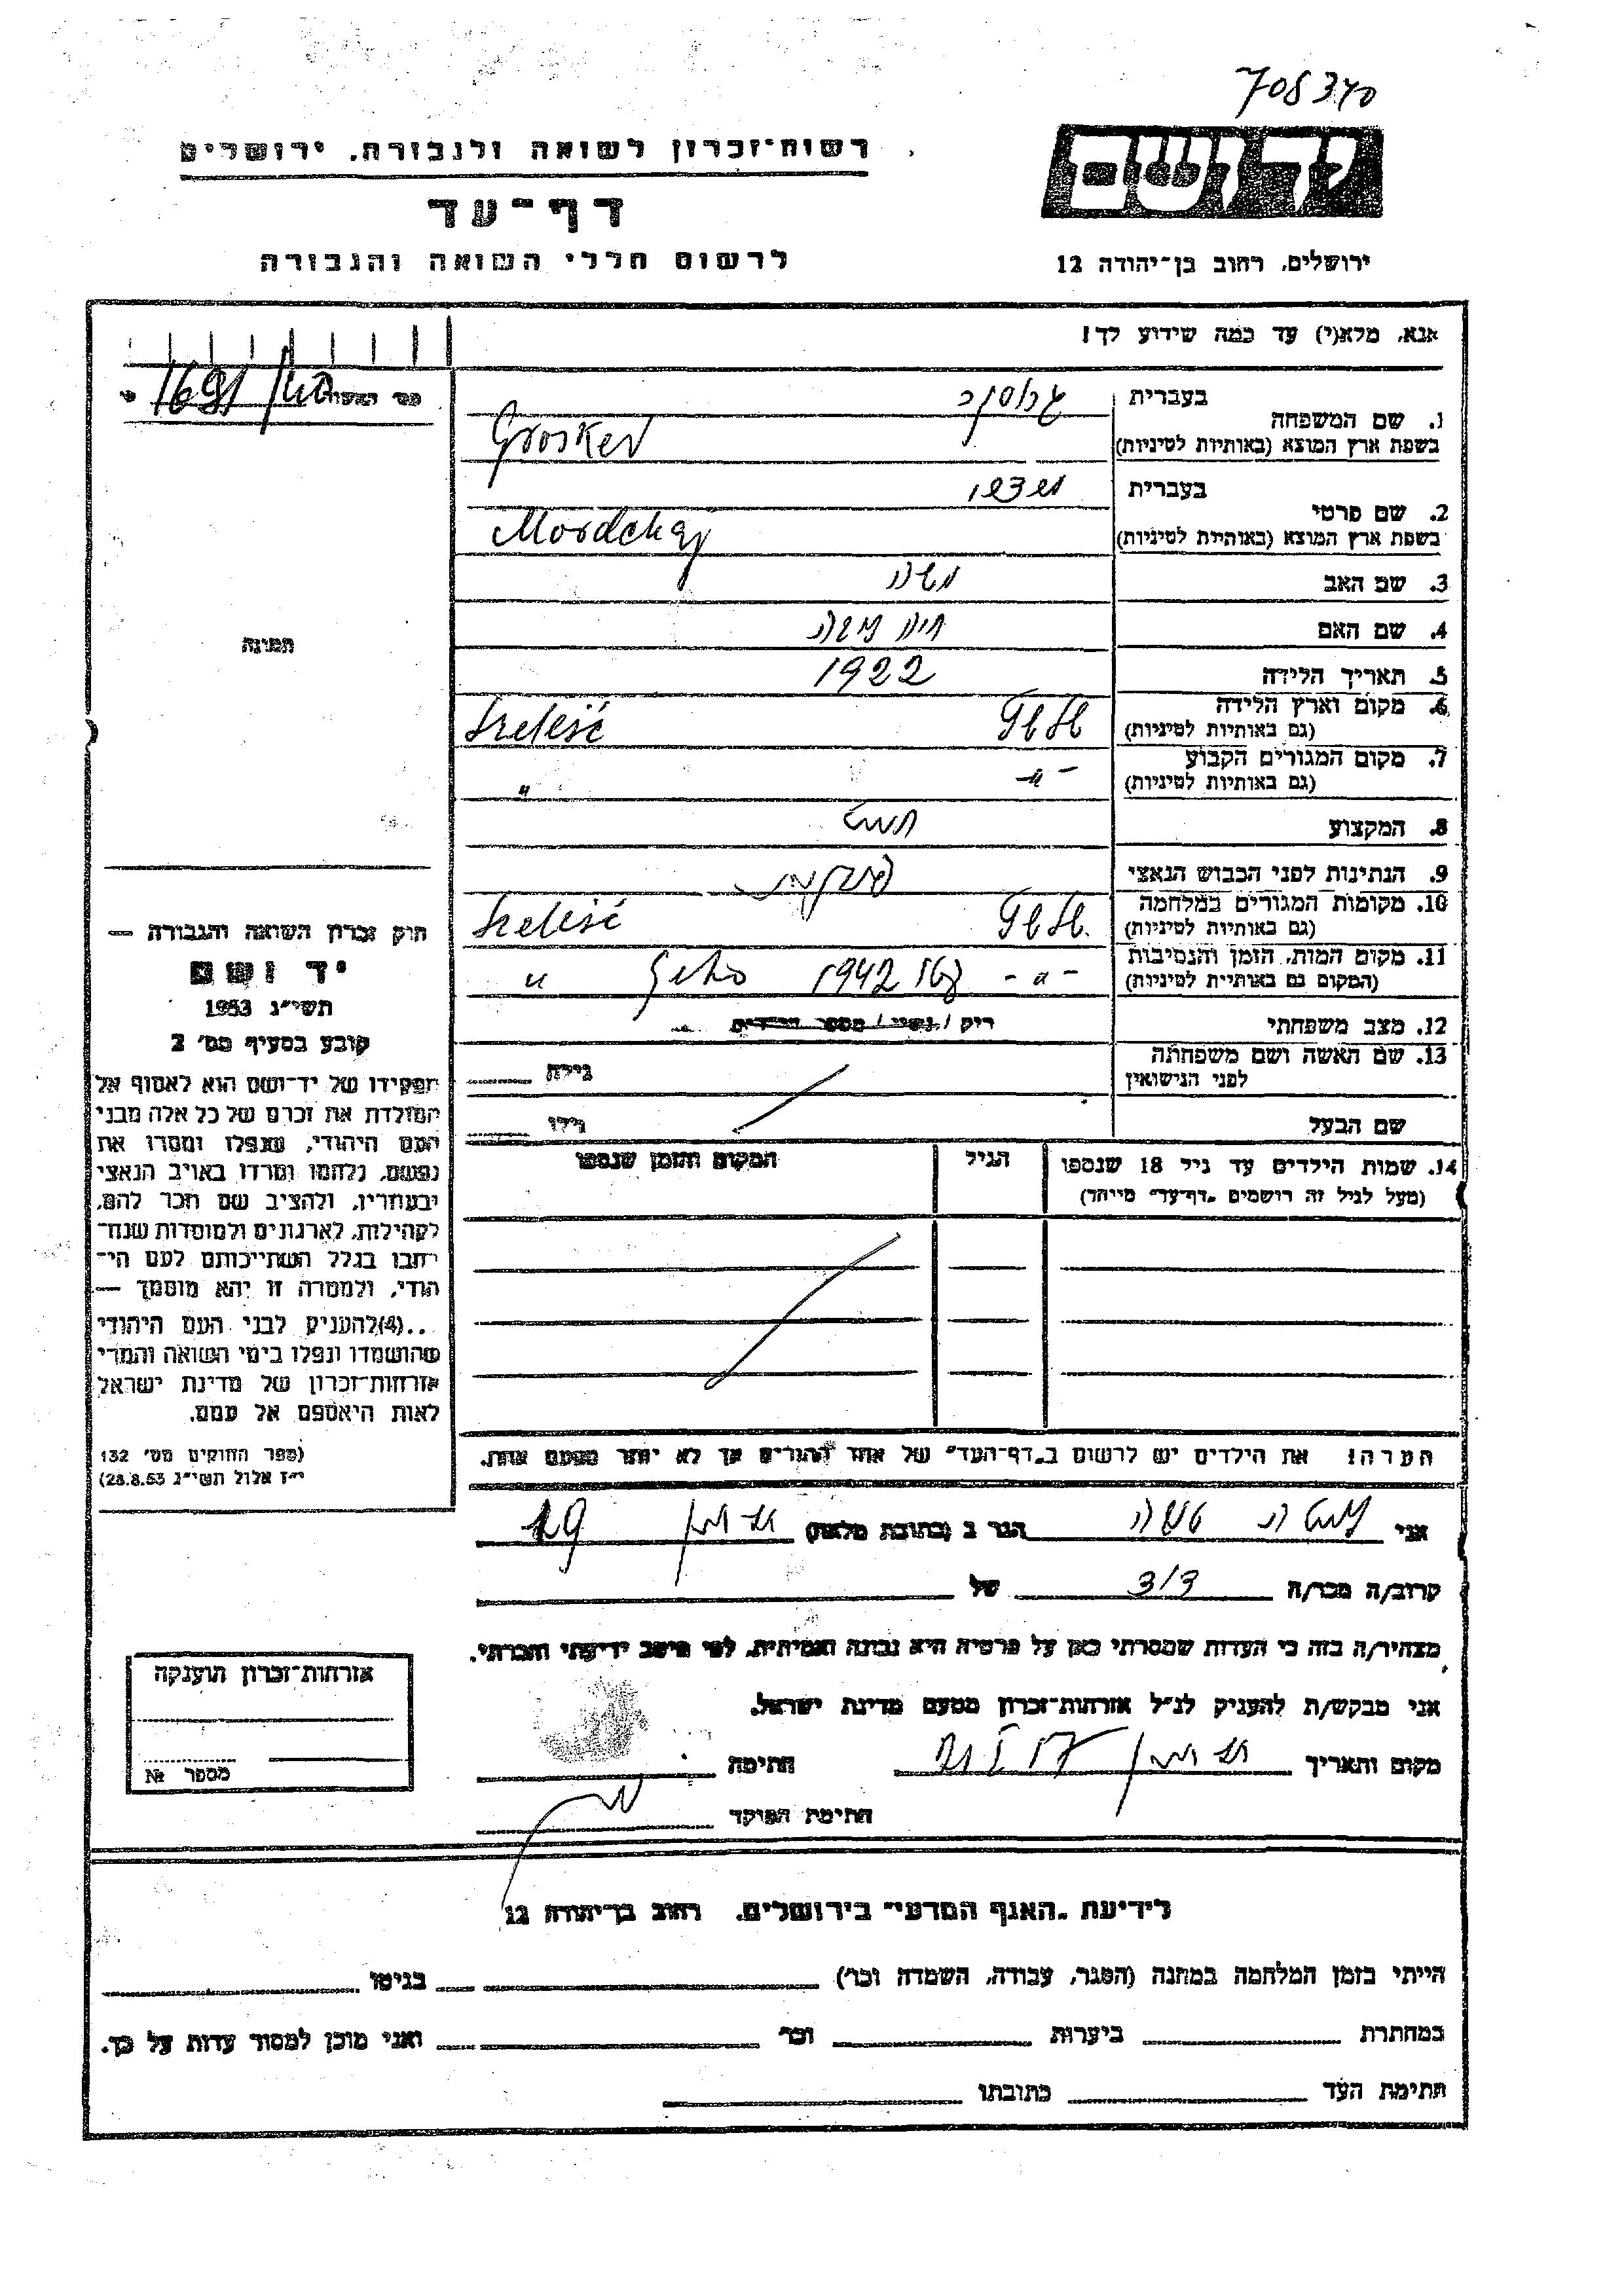 708370
ידושם
רשות־זכרון לשואה ולגבורה. ירושלים
דף־עד
לרשום חללי השואה והגבורה
ירושלים, רחוב בן־יהודה 12
אנא, מלא(י) עד כמה שידוע לך!
1. שם המשפחה
בעברית
בשפת ארץ המוצא (באותיות לטיניות)
Grosker
2. שם פרטי
בעברית
בשפת ארץ המוצא (באותיות לטיניות)
Mordchaj
3. שם האב משה
4. שם האם חיה
5. תאריך הלידה 1922
6. מקום וארץ הלידה
(גם באותיות לטיניות)
7. מקום המגורים הקבוע
(גם באותיות לטיניות) -"- "
8. המקצוע
9. הנתינות לפני הכבוש הנאצי
10. מקומות המגורים במלחמה
(גם באותיות לטיניות)
11. מקום המות, הזמן והנסיבות
(המקום גם באותיות לטיניות) -"- 1942 "
12. מצב משפחתי רוק / נשוי / מספר הילדים
13. שם האשה ושם משפחתה
לפני הנישואין גילה
שם הבעל גילו
14. שמות הילדים עד גיל 18 שנספו הגיל המקום והזמן שנספו
(מעל לגיל זה רושמים „דף־עד" מיוחד)
הערה! את הילדים יש לרשום ב„דף־העד" של אחד ההורים אך לא יותר מפעם אחת.
אני משה הגר ב (כתובת מלאה)
קרוב/ה מכר/ה דוד של
מצהיר/ה בזה כי העדות שמסרתי כאן על פרטיה היא נכונה ואמיתית, לפי מיטב ידיעתי והכרתי.
אני מבקש/ת להעניק לנ"ל אזרחות־זכרון מטעם מדינת ישראל.
מקום ותאריך חתימה
חתימת הפוקד
מס׳ האשה 1691
תמונה
חוק זכרון השואה והגבורה —
יד ושם
תשי"ג 1953
קובע בסעיף מס׳ 2
תפקידו של יד־ושם הוא לאסוף אל
המולדת את זכרם של כל אלה מבני
העם היהודי, שנפלו ומסרו את
נפשם, נלחמו ומרדו באויב הנאצי
ובעוזריו, ולהציב שם וזכר להם,
לקהילות, לארגונים ולמוסדות שנח־
רבו בגלל השתייכותם לעם הי־
הודי, ולמטרה זו יהא מוסמך —
..(4)להעניק לבני העם היהודי
שהושמדו ונפלו בימי השואה והמרי
אזרחות־זכרון של מדינת ישראל
לאות היאספם אל עמם.
(ספר החוקים מס׳ 132
י"ז אלול תשי"ג 28.8.53)
אזרחות־זכרון תוענקה
מספר №
לידיעת „האגף המדעי" בירושלים, רחוב בן־יהודה 12
הייתי בזמן המלחמה במחנה (הסגר, עבודה, השמדה וכו׳) בגיטו
במחתרת ביערות וכו׳ ואני מוכן למסור עדות על כך.
חתימת העד כתובתו